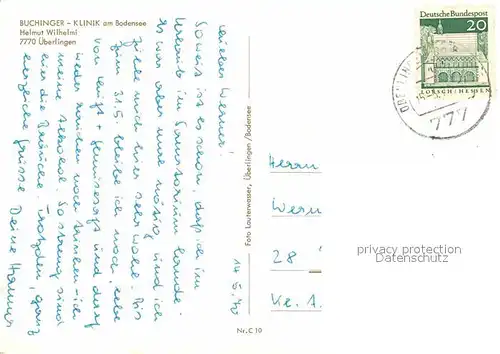 BUCHINGER - KLINIK am Bodensee
Helmut Wilhelmi
7770 Überlingen
14.5.70
Lieber Werner!
So weit ist es schon, daß ich im
Urlaub im Sanatorium lande.
Es war aber mal nötig und ich
fühle mich hier sehr wohl. Bis
zum 31.5. bleibe ich noch, lebe
von Luft + Gemüsesaft und darf
weder rauchen noch trinken - ich
meine Alkohol. So streng sind
hier die Bräuche. Trotzdem, ganz
herzliche Grüsse Deine Hannes
Foto Lauterwasser, Überlingen/Bodensee
Nr. C 10
Deutsche Bundespost
20
LORSCH/HESSEN
777
Herrn
Wern
28
privacy protection
Datenschutz